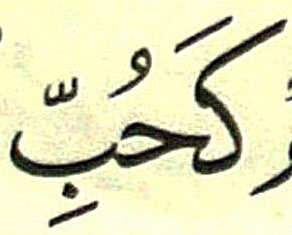 كَحُبِّ